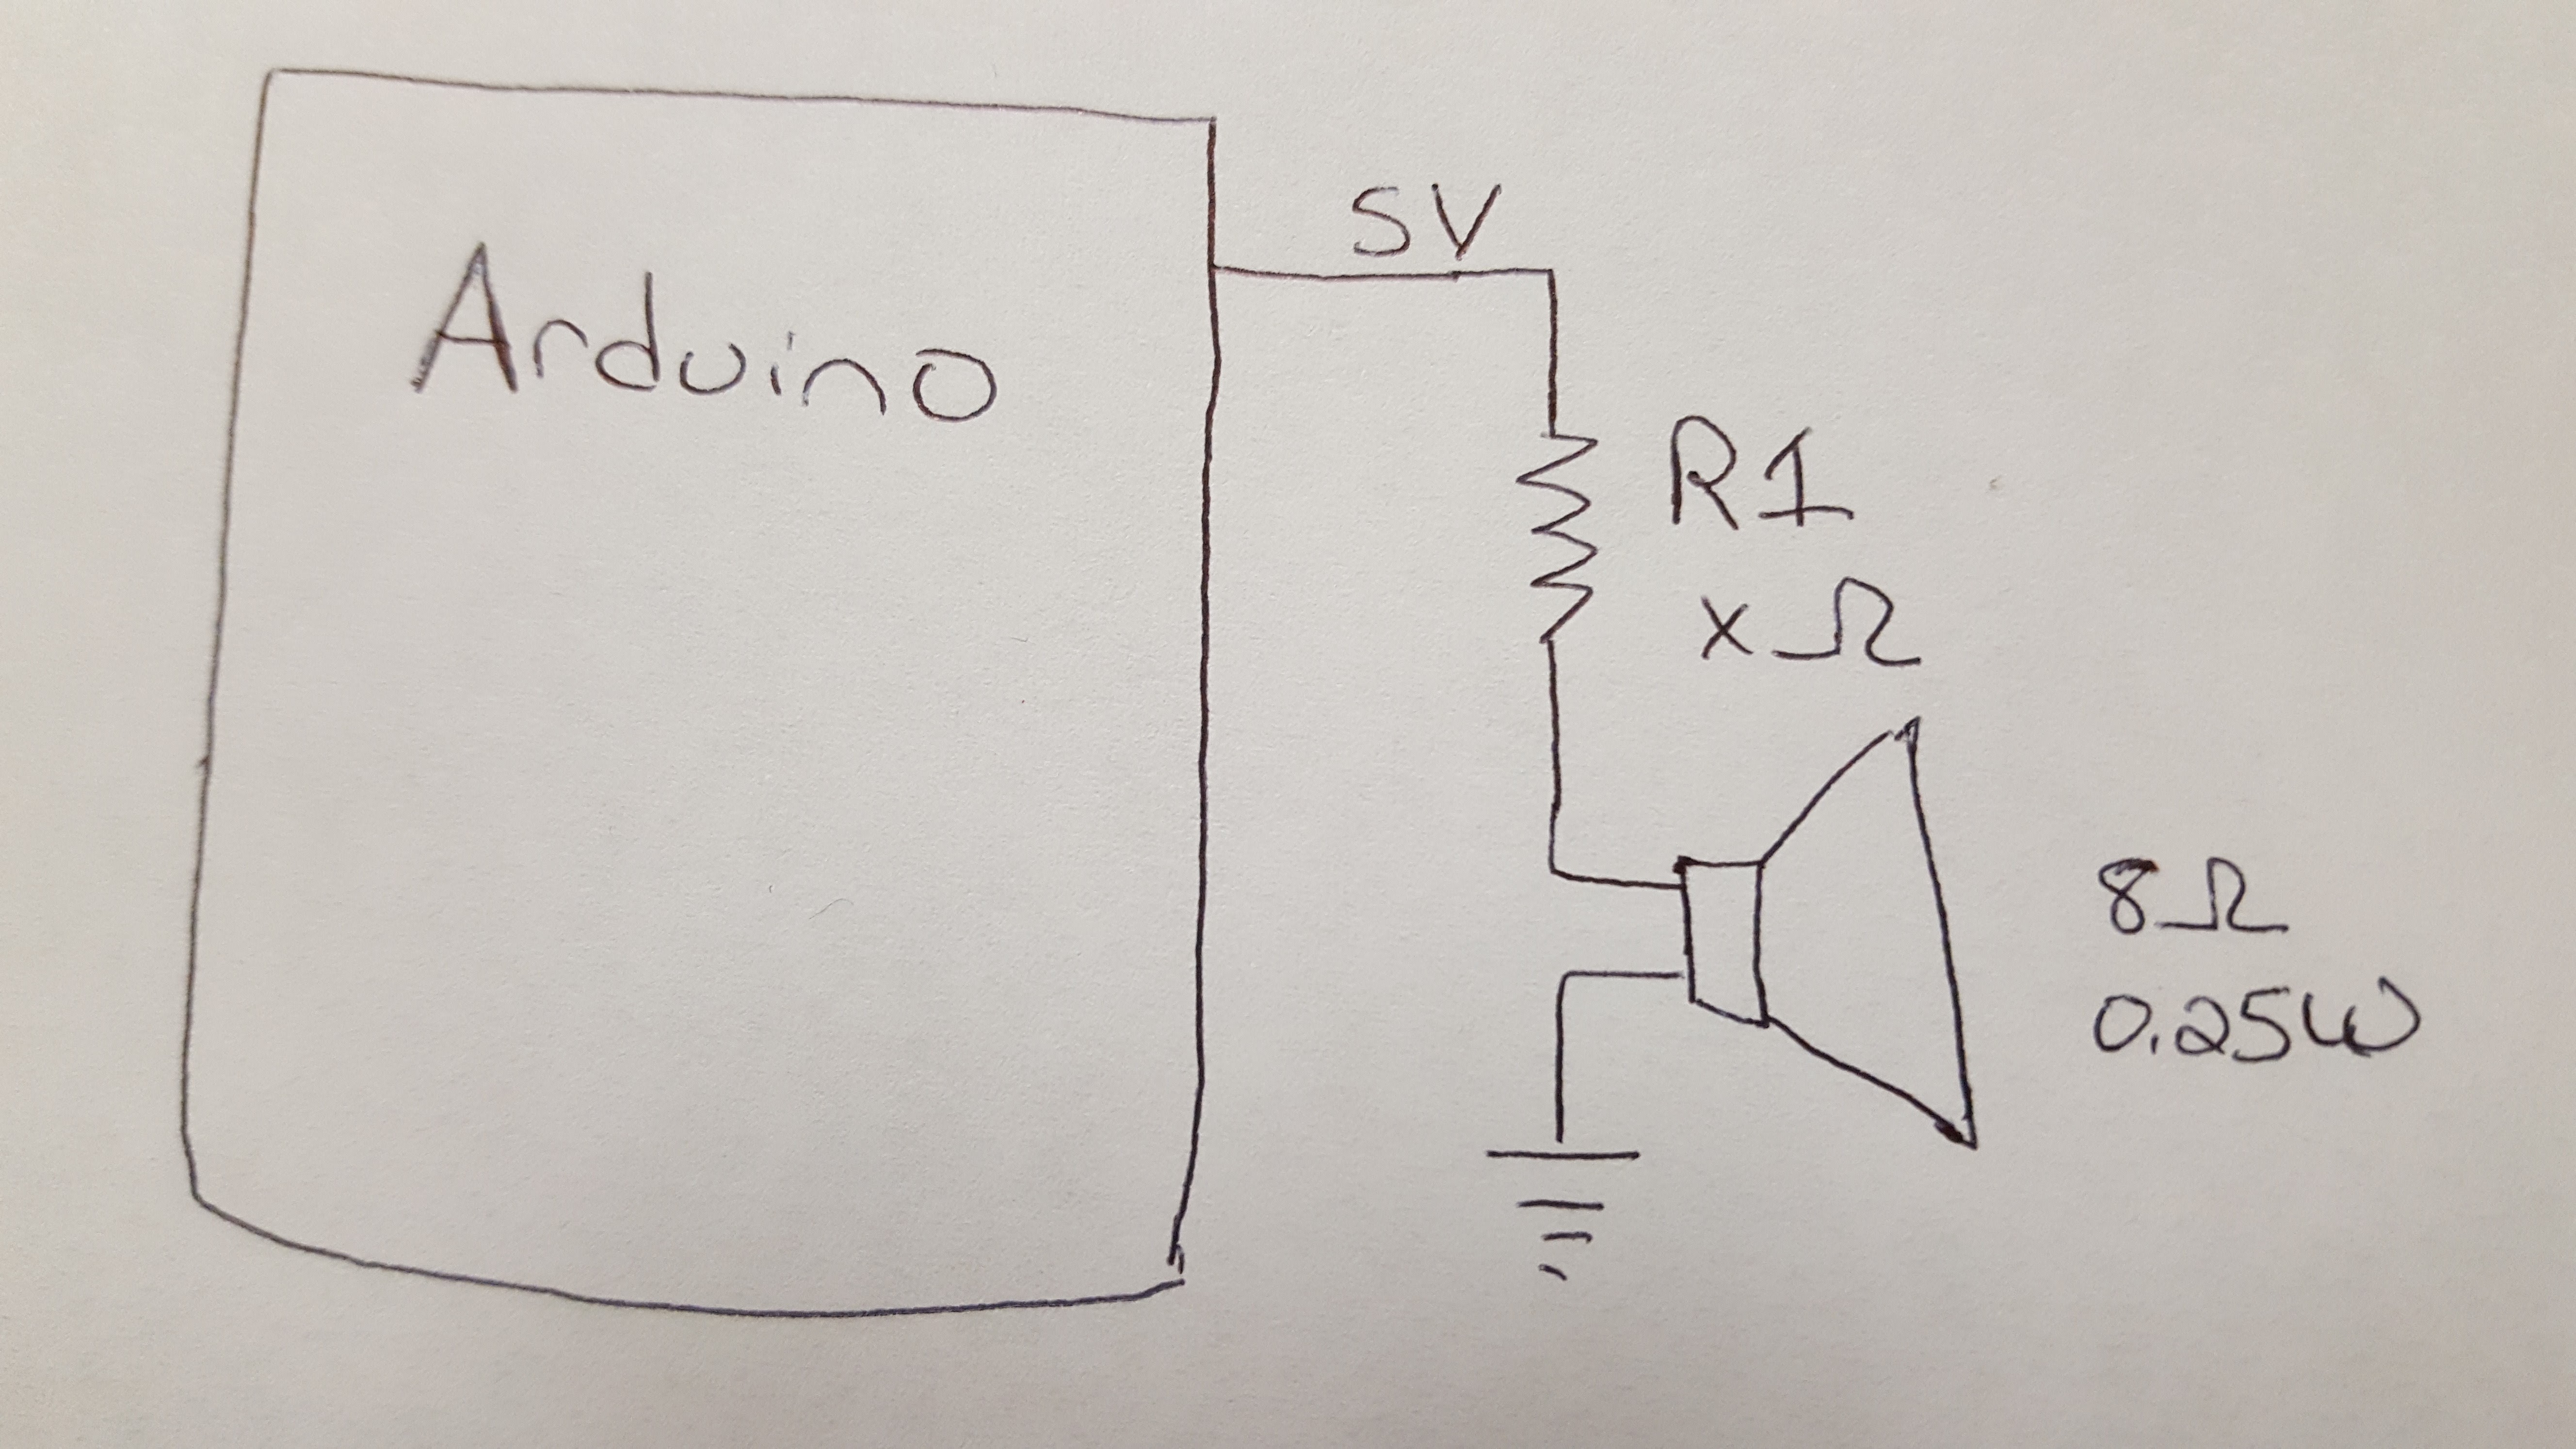 Arduino
5V
R1
x Ω
8Ω
0.25W